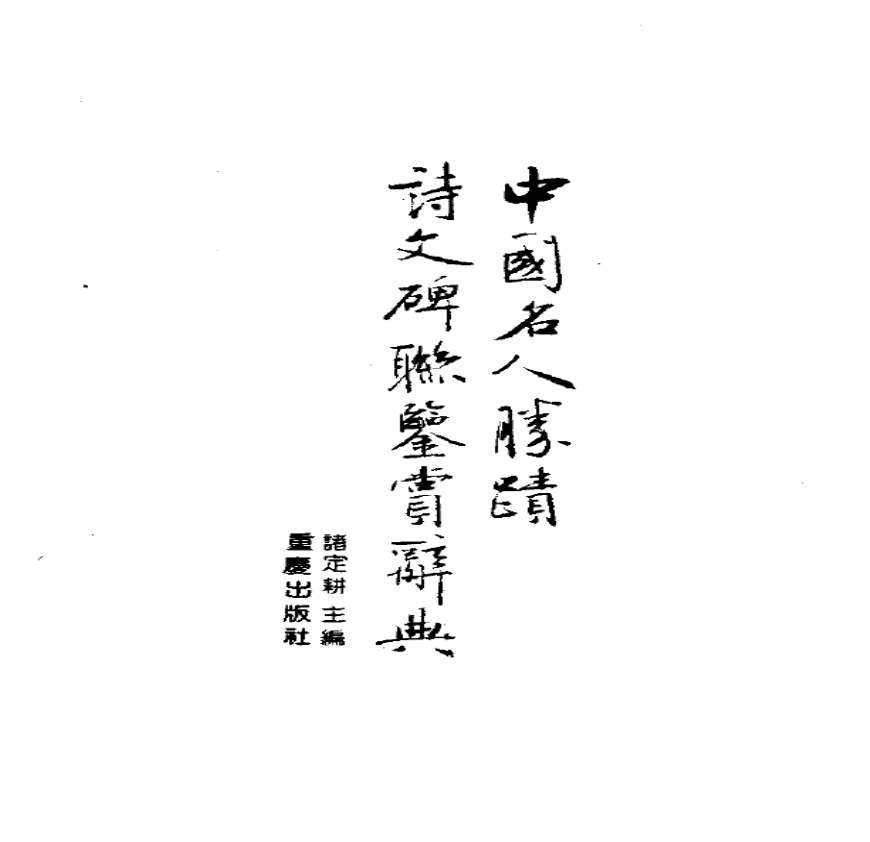 中國名人勝蹟
詩文碑聯鑒賞辭典
諸定耕 主編
重慶出版社